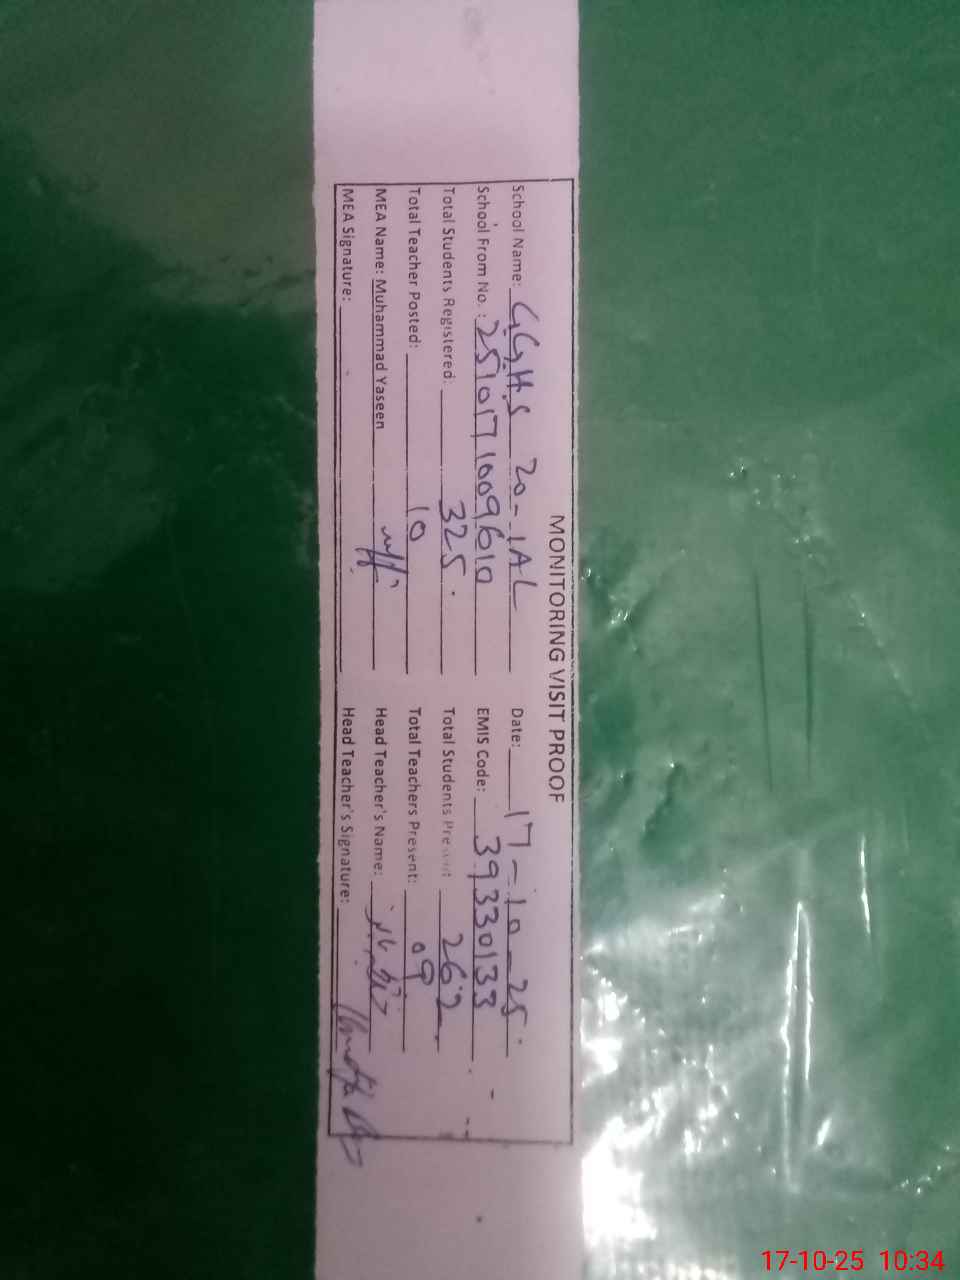 MONITORING VISIT PROOF
School Name: GGHS 20-1AL Date: 17-10-25
School From No. : 2510171009610 EMIS Code: 39330133
Total Students Registered: 325 Total Students Present: 262
Total Teacher Posted: 10 Total Teachers Present: 09
MEA Name: Muhammad Yaseen Head Teacher's Name:
MEA Signature: Head Teacher's Signature:
17-10-25 10:34